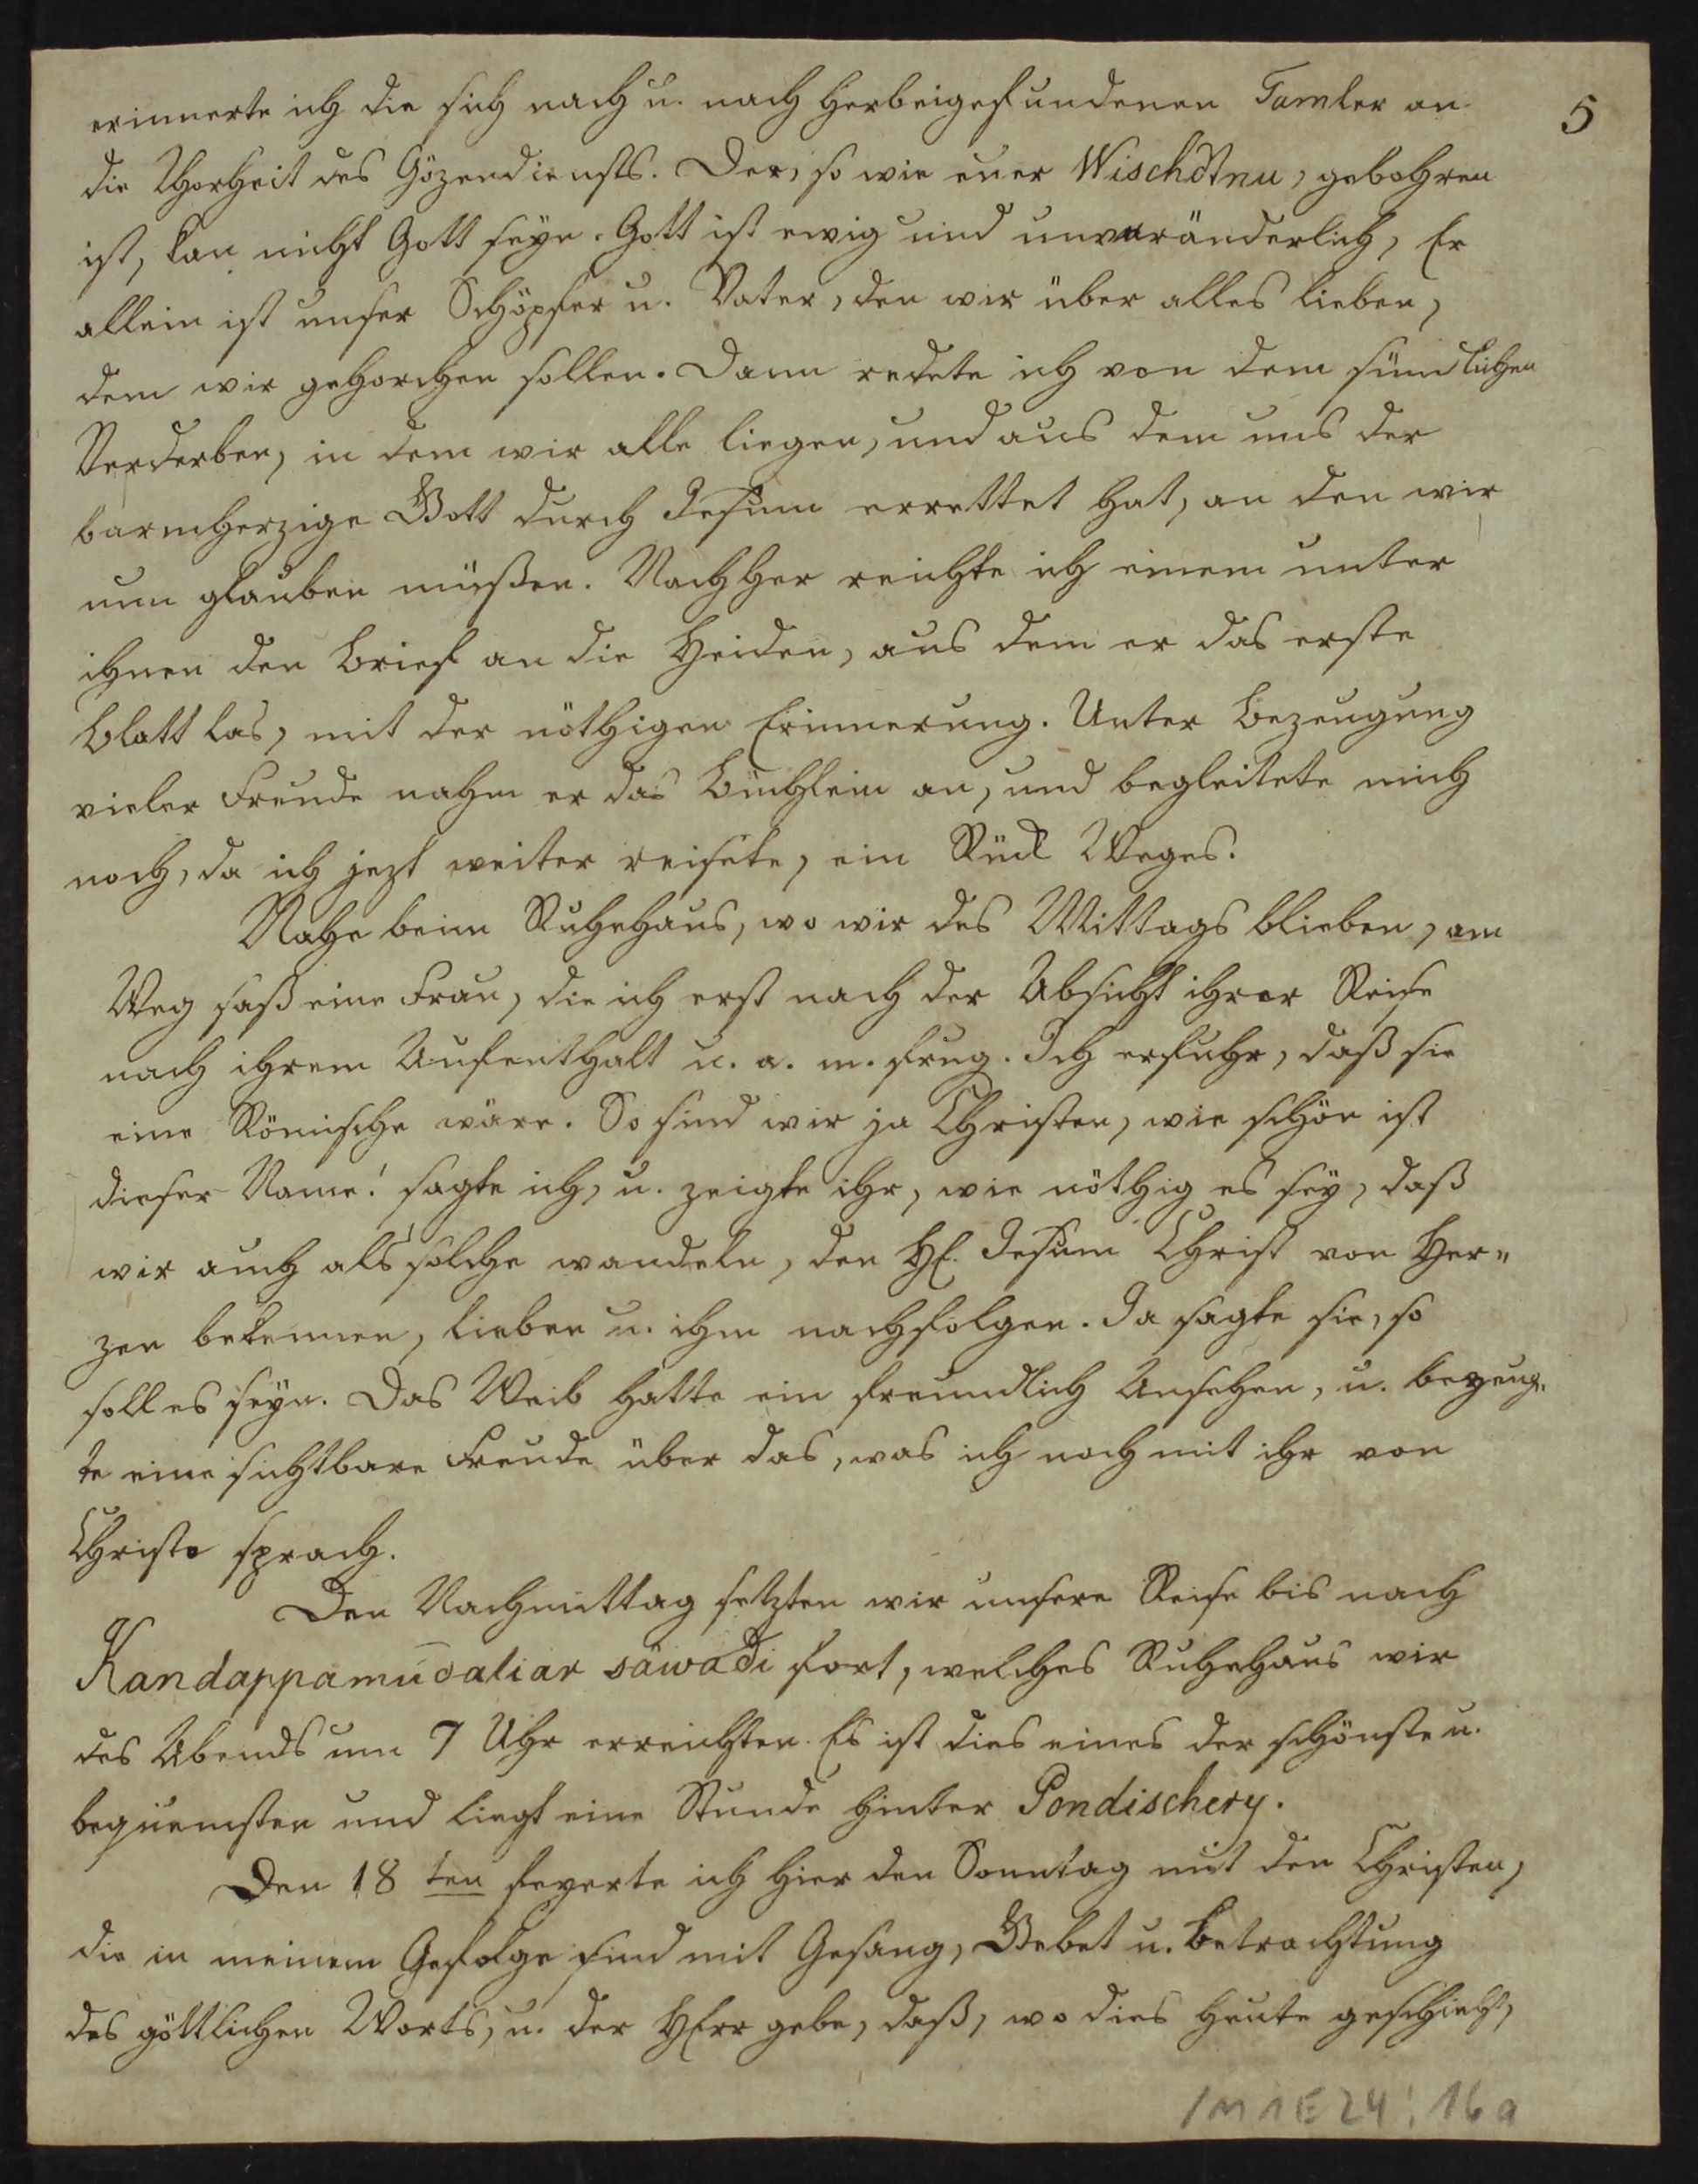 5
erinnerte ich die sich nach u. nach herbeigefundenen Tamler an
die Thorheit des Gözendiensts. Der, so wie euer Wischtnu, gebohren
ist, kan nicht Gott seyn. Gott ist ewig und unveränderlich, Er
allein ist unser Schöpfer u. Vater, den wir über alles lieben,
dem wir gehorchen sollen. Dann redete ich von dem sündlichen
Verderben, in dem wir alle liegen, und aus dem uns der
barmherzige Gott durch Jesum errettet hat, an den wir
nun glauben müßen. Nachher reichte ich einem unter
ihnen den Brief an die Heiden, aus dem er das erste
Blatt las, mit der nöthigen Erinnerung. Unter Bezeugung
vieler Freude nahm er das Büchlein an, und begleitete mich
noch, da ich jezt weiter reisete, ein Stück Weges.
Nahe beim Ruhehaus, wo wir des Mittags blieben, am
Weg saß eine Frau, die ich erst nach der Absicht ihrer Reise
nach ihrem Aufenthalt u. a. m. frug. Ich erfuhr, daß sie
eine Römische wäre. So sind wir ja Christen, wie schön ist
dieser Name! sagte ich, u. zeigte ihr, wie nöthig es sey, daß
wir auch als solche wandeln, den HE. Jesum Christ von Her„
zen bekennen, lieben u. ihm nachfolgen. Ja sagte sie, so
soll es seyn. Das Weib hatte ein freundlich Ansehen, u. bezeug„
te eine sichtbare Freude über das, was ich noch mit ihr von
Christo sprach.
Den Nachmittag sezten wir unsere Reise bis nach
Kandappamudaliar sawadi fort, welches Ruhehaus wir
des Abends um 7 Uhr erreichten. Es ist dies eines der schönste u.
bequemsten und liegt eine Stunde hinter Pondischery.
Den 18 ten feyerte ich hier den Sonntag mit den Christen,
die in meinem Gefolge sind mit Gesang, Gebet u. Betrachtung
des göttlichen Worts, u. der HErr gebe, daß, wo dies heute geschieht,
1M 1E 24 : 16a